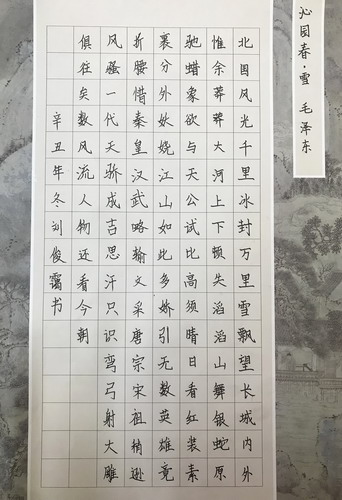 沁园春·雪 毛泽东
北国风光千里冰封万里雪飘望长城内外
惟余莽莽大河上下顿失滔滔山舞银蛇原
驰蜡象欲与天公试比高须晴日看红装素
裹分外妖娆江山如此多娇引无数英雄竟
折腰惜秦皇汉武略输文采唐宗宋祖稍逊
风骚一代天骄成吉思汗只识弯弓射大雕
俱往矣数风流人物还看今朝
辛丑年冬刘俊霭书